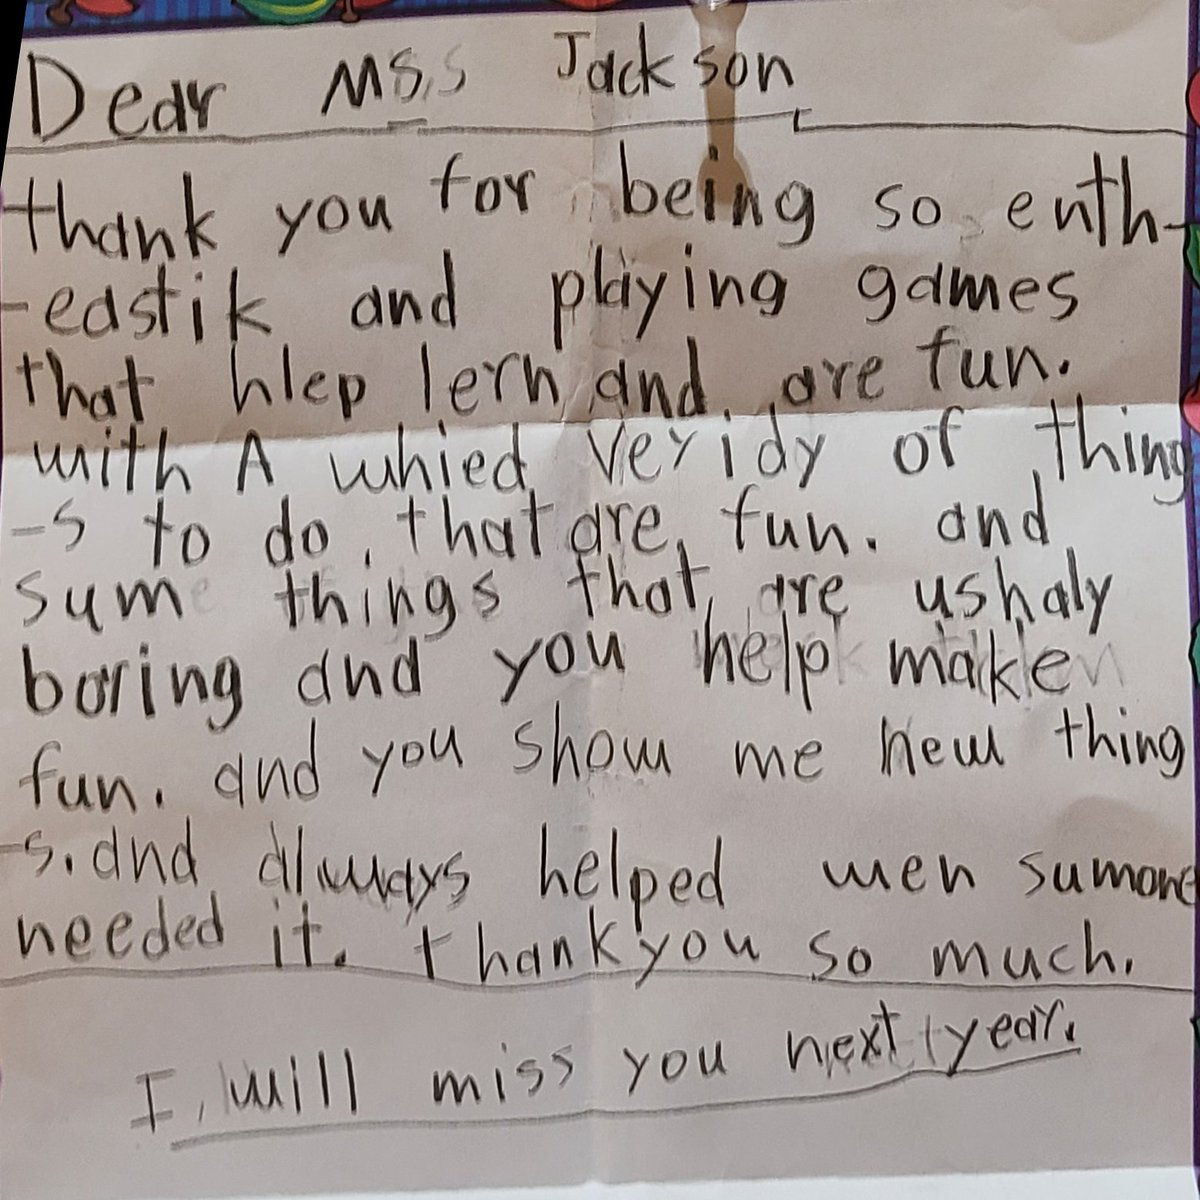 Dear Mss Jackson
thank you for being so enth-
-eastik and playing games
that hlep lern and are fun.
with A whied veridy of thing
-s to do that are fun. and
sum things that are ushaly
boring and you help make
fun. and you show me new thing
-s. and always helped wen sumone
needed it. thank you so much.
I will miss you next year.